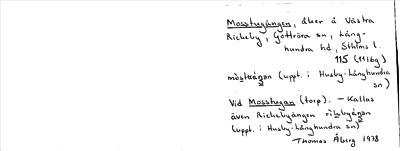 Mosstugängen, åker å Västra
Rickeby, Gottröra sn, Lång-
hundra hd, Sthlms l.
115 (11Ibg)
(uppt. i Husby-Långhundra
sn)
Vid Mosstugan (torp). – Kallas
även Rickebyängen
(uppt. i Husby-Långhundra sn)
Thomas Åberg 1978